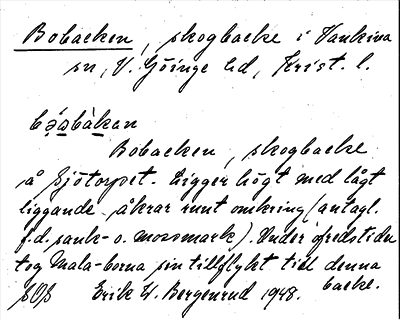 Bobacken, skogbacke i Vankiva
sn, V. Göinge hd, Krist. l.
Bobacken, skogbacke
å Sjötorpet. Ligger högt med lågt
liggande åkrar runt omkring (antagl.
f.d. sank- o. mossmark). Under ofredstiden
tog Mala-borna sin tillflykt till denna
backe.
Erik W. Bergenrud 1948.